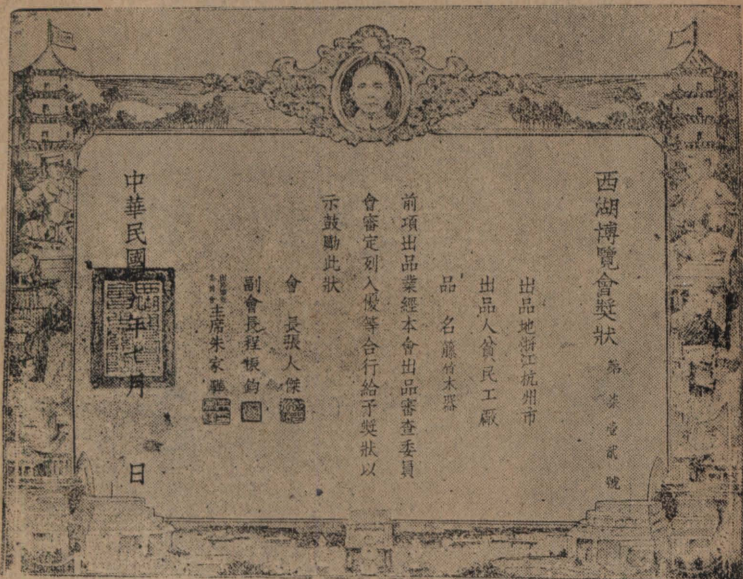 西湖博覽會奬狀
第柒壹貳號
出品地浙江杭州市
出品人貧民工廠
品名籐竹木器
前項出品業經本會出品審查委員
會審定列入優等合行給予奬狀以
示鼓勵此狀
會長張人傑
副會長程振鈞
主席朱家驊
中華民國 九年七月 日